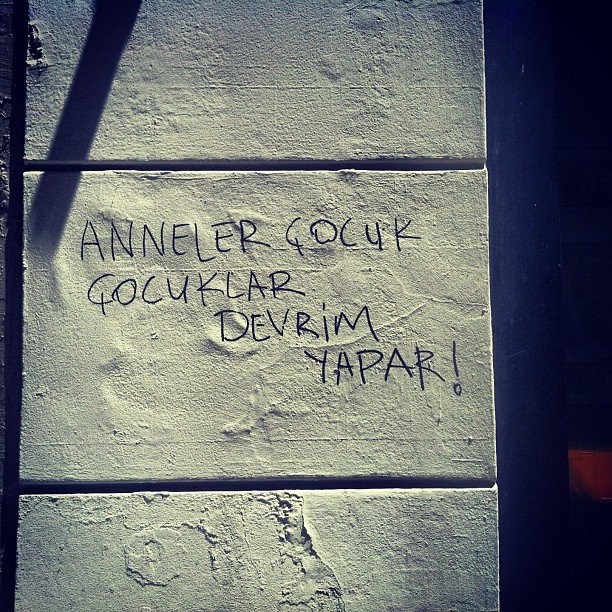 ANNELER ÇOCUK
ÇOCUKLAR
DEVRİM
YAPAR!